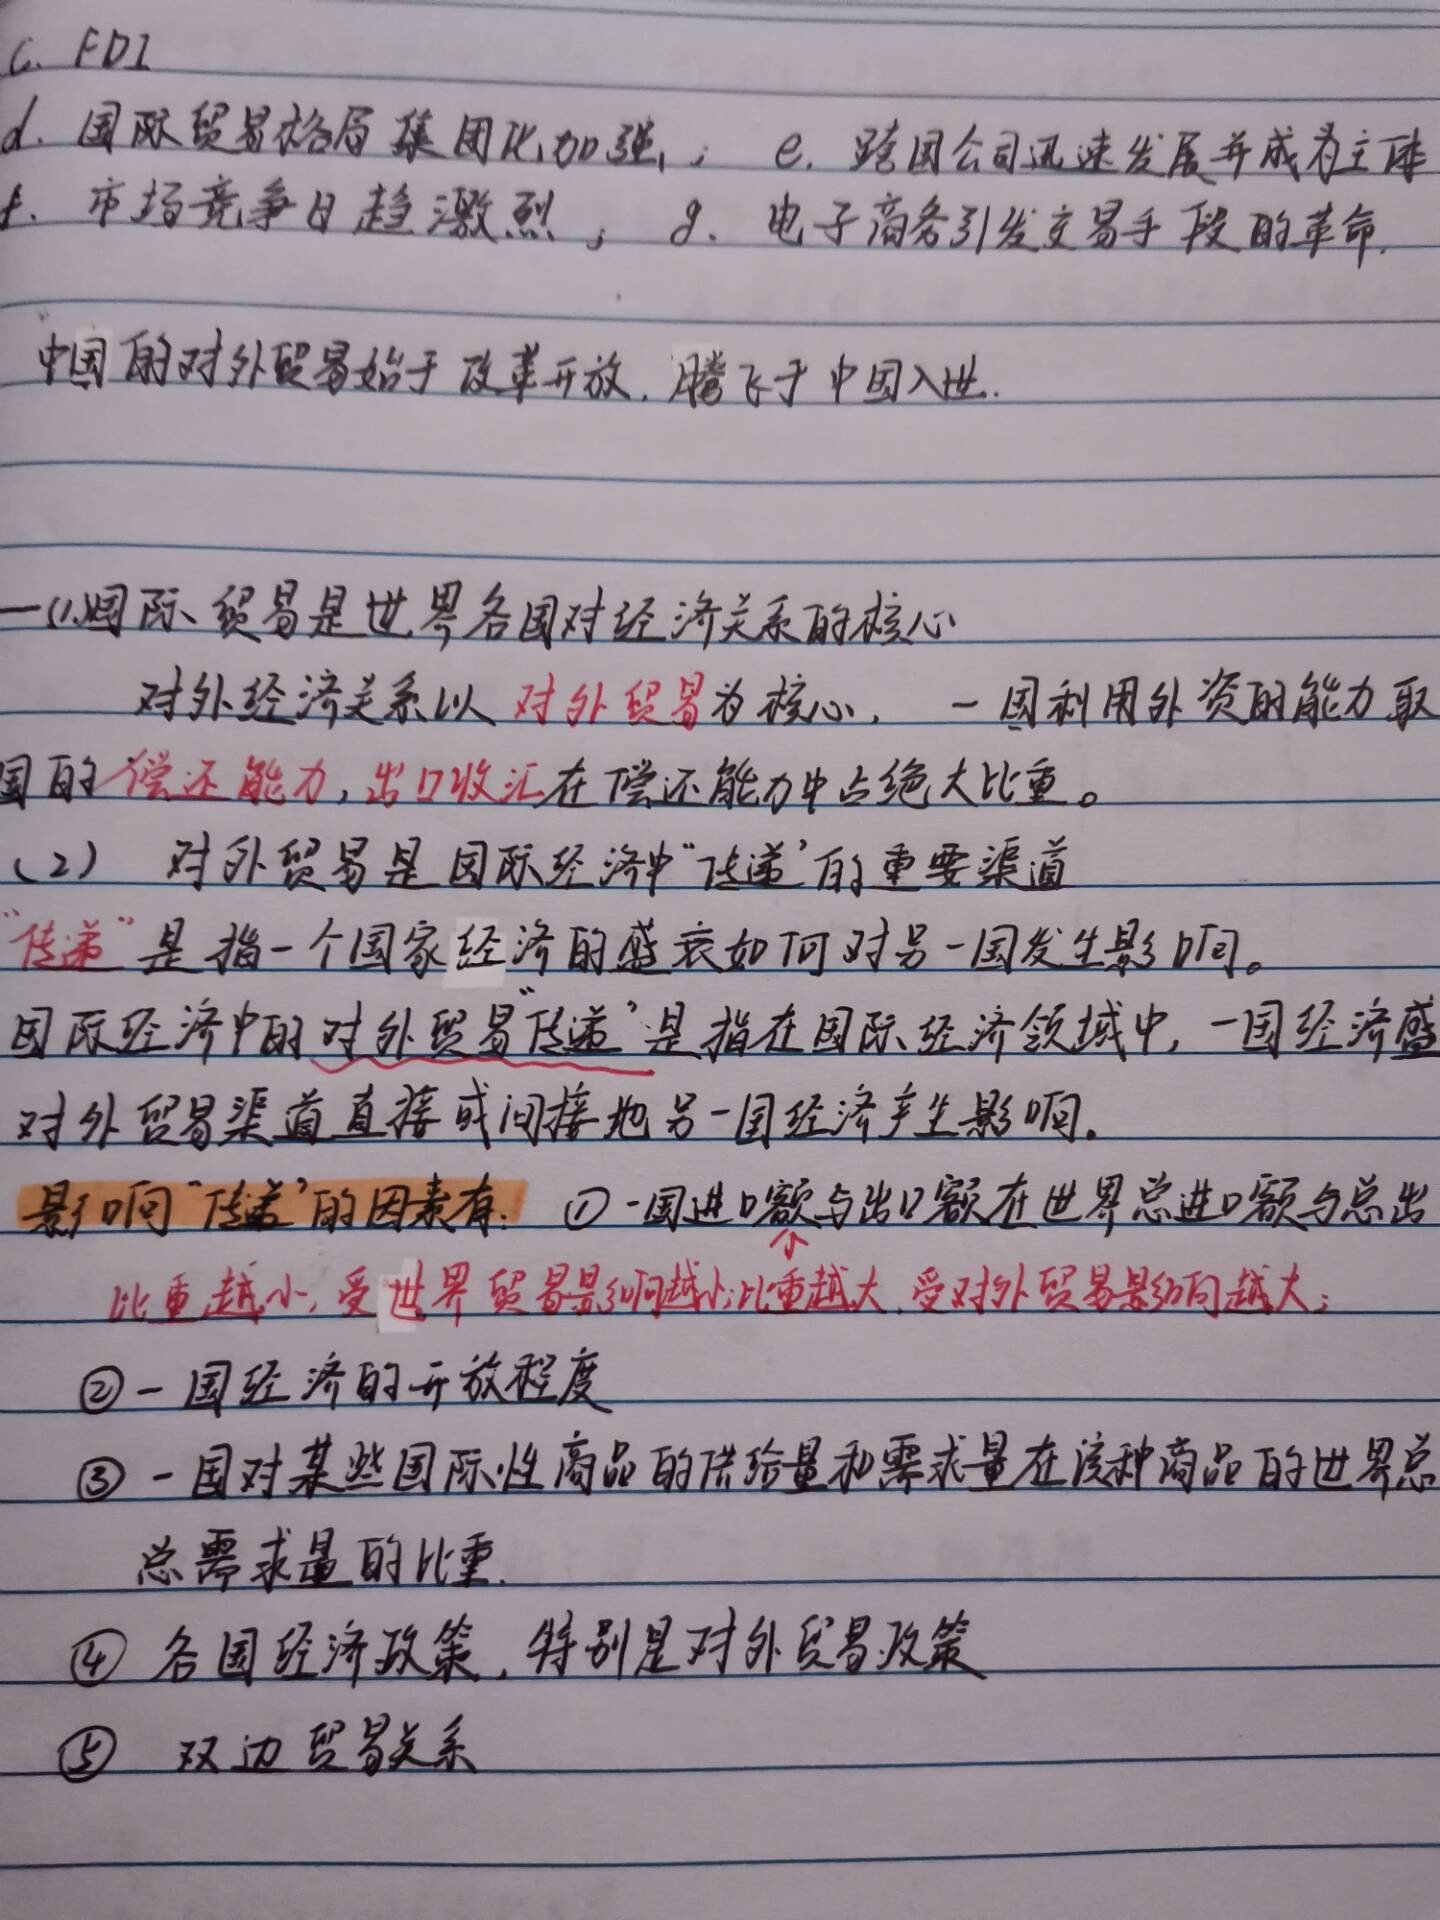 c. FDI
d. 国际贸易格局集团化加强； e. 跨国公司迅速发展并成为主体
f. 市场竞争日趋激烈； g. 电子商务引发交易手段的革命.
"中国的对外贸易始于改革开放，腾飞于中国入世.
一(1)国际贸易是世界各国对经济关系的核心
对外经济关系以对外贸易为核心， 一国利用外资的能力取
国的偿还能力，出口收汇在偿还能力中占绝大比重。
(2) 对外贸易是国际经济中"传递"的重要渠道
"传递"是指一个国家经济的盛衰如何对另一国发生影响。
国际经济中的对外贸易"传递"是指在国际经济领域中，一国经济盛
对外贸易渠道直接或间接地另一国经济产生影响.
影响"传递"的因素有： ①一国进口额与出口额在世界总进口额与总出
比重越小，受世界贸易影响越小；比重越大，受对外贸易影响越大；
②一国经济的开放程度
③一国对某些国际性商品的供给量和需求量在该种商品的世界总
总需求量的比重.
④ 各国经济政策，特别是对外贸易政策
⑤ 双边贸易关系